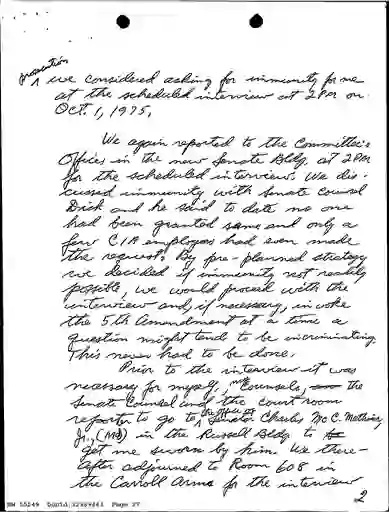 prosecution
^ we considered asking for immunity for me
at the scheduled interview at 2PM on
Oct. 1, 1975.
We again reported to the Committee's
Offices in the new Senate Bldg. at 2PM
for the scheduled interview. We dis-
cussed immunity with Senate Counsel
Dick and he said to date no one
had been granted same and only a
few CIA employees had even made
the request. By pre-planned strategy
we decided if immunity not readily
possible, we would proceed with the
interview and, if necessary, invoke
the 5th Amendment at a time a
question might tend to be incriminating.
This never had to be done.
Prior to the interview it was
necessary for myself, my Counsels, the
Senate Counsel and the court room
reporter to go to ^ the office of Senator Charles McC. Mathias,
Jr., (MD) in the Russell Bldg to
get me sworn by him. We there-
after adjourned to Room 608 in
the Carroll Arms for the interview
2
Page 27